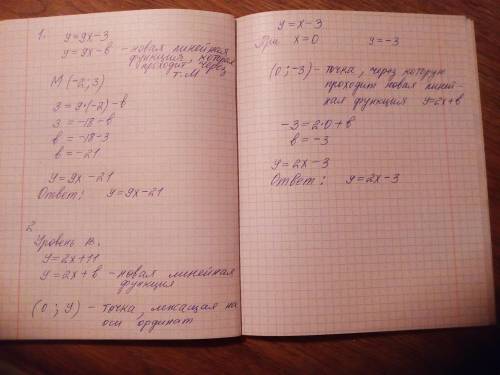 1. y=9x-3
y=9x-b - новая линейная
функция, которая
проходит через
т.M
M (-2; 3)
3=9·(-2)-b
3=-18-b
b=-18-3
b=-21
y=9x-21
Ответ: y=9x-21
2
Уровень B.
y=2x+11
y=2x+b - новая линейная
функция
(0; y) - точка, лежащая на
оси ординат
y=x-3
При x=0 y=-3
(0; -3) - точка, через которую
проходит новая линей-
ная функция y=2x+b
-3=2·0+b
b=-3
y=2x-3
Ответ: y=2x-3